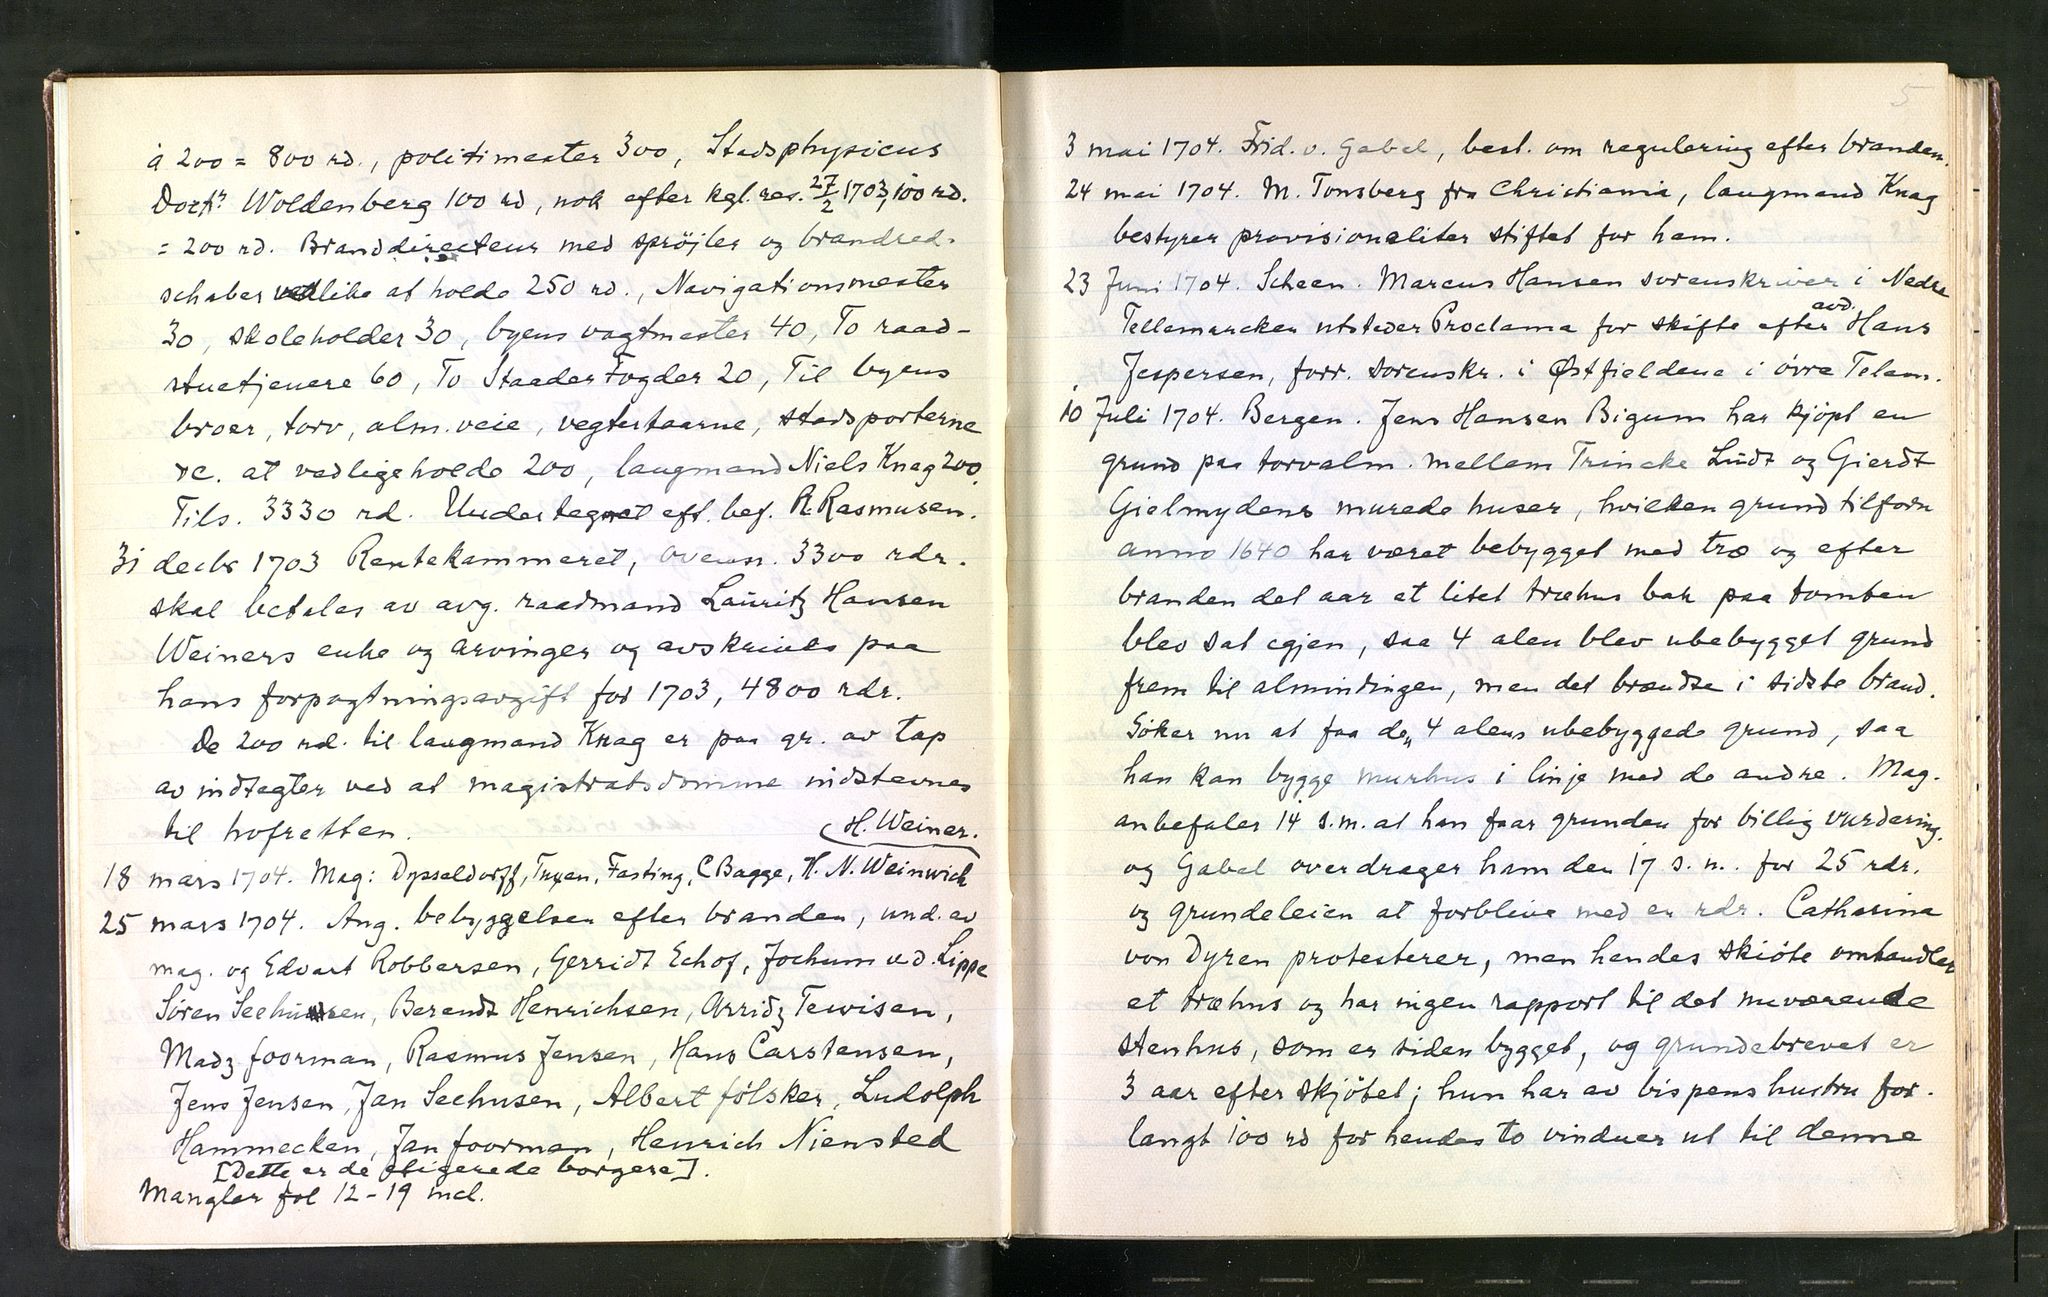 à 200 = 800 rd., politimester 300, Stadsphysicus
Doctr Woldenberg 100 rd, nok efter kgl. res. 27/2 1703, 100 rd.
= 200 rd. Branddirecteur med sprøjter og brandred-
schaber vedlike at holde 250 rd., Navigationsmester
30, skoleholder 30, byens vagtmester 40, To raad-
stuetjenere 60, To Staader Fogder 20, Til byens
broer, torv, alm. veie, vegtertaarne, stadsporterne
&c. at vedligeholde 200, laugmand Niels Knag 200.
Tils. 3330 rd. Undertegnet eft. bef. R. Rasmusen.
31 decbr 1703 Rentekammeret, ovenn. 3300 rdr.
skal betales av avg. raadmand Lauritz Hansen
Weiners enke og arvinger og avskrives paa
hans forpagtningsavgift for 1703, 4800 rdr.
De 200 rd. til laugmand Knag er paa gr. av tap
av indtegter ved at magistratsdomme indstevnes
til hofretten.
(H. Weiner.
18 mars 1704. Mag: Dysseldorff, Truen, Fasting, C Bagge, H. N. Weinwich
25 mars 1704. Ang. bebyggelsen efter branden, und. av
mag. og Edvart Robbersen, Gerridt Echof, Jochum v.d. Lippe
Søren Seehusen, Berendt Henrichsen, Arridz Tewisen,
Madz foorman, Rasmus Jensen, Hans Carstensen,
Jens Jensen, Jan Seehusen, Albert følsker, Ludolph
Hammecken, Jan foorman, Henrich Niensted
[Dette er de eligerede borgere].
Mangler fol 12-19 incl.
5
3 mai 1704. Frid. v. Gabel, best. om regulering efter branden.
24 mai 1704. M. Tonsberg fra Christiania, laugmand Knag
bestyrer provisionaliter stiftet for ham.
23 Juni 1704. Scheen. Marcus Hansen sorenskriver i Nedre
Tellemarcken utsteder Proclama for skifte efter avd. Hans
Jespersen, forr. sorenskr. i Østfieldene i øvre Telem.
10 Juli 1704. Bergen. Jens Hansen Bigum har kjöpt en
grund paa torvalm. mellem Trincke Lüdt og Gierdt
Gielmydens murede huser, hvilken grund tilforn
anno 1640 har været bebygget med træ og efter
branden det aar et litet træhus bak paa tomten
blev sat igjen, saa 4 alen blev ubebygget grund
frem til almindingen, men det brændte i sidste brand.
Søker nu at faa de 4 alens ubebyggede grund, saa
han kan bygge murhus i linje med de andre. Mag.
anbefaler 14 s.m. at han faar grunden for billig vurdering.
og Gabel overdrager ham den 17 s.m. for 25 rdr.
og grundeleien at forblive med en rdr. Catharina
von Dyren protesterer, men hendes skiöte omhandler
et træhus og har ingen rapport til det nuværende
stenhus, som er siden bygget, og grundebrevet er
3 aar efter skjötet; hun har av bispens hustru for-
langt 100 rd for hendes to vinduer ut til denne